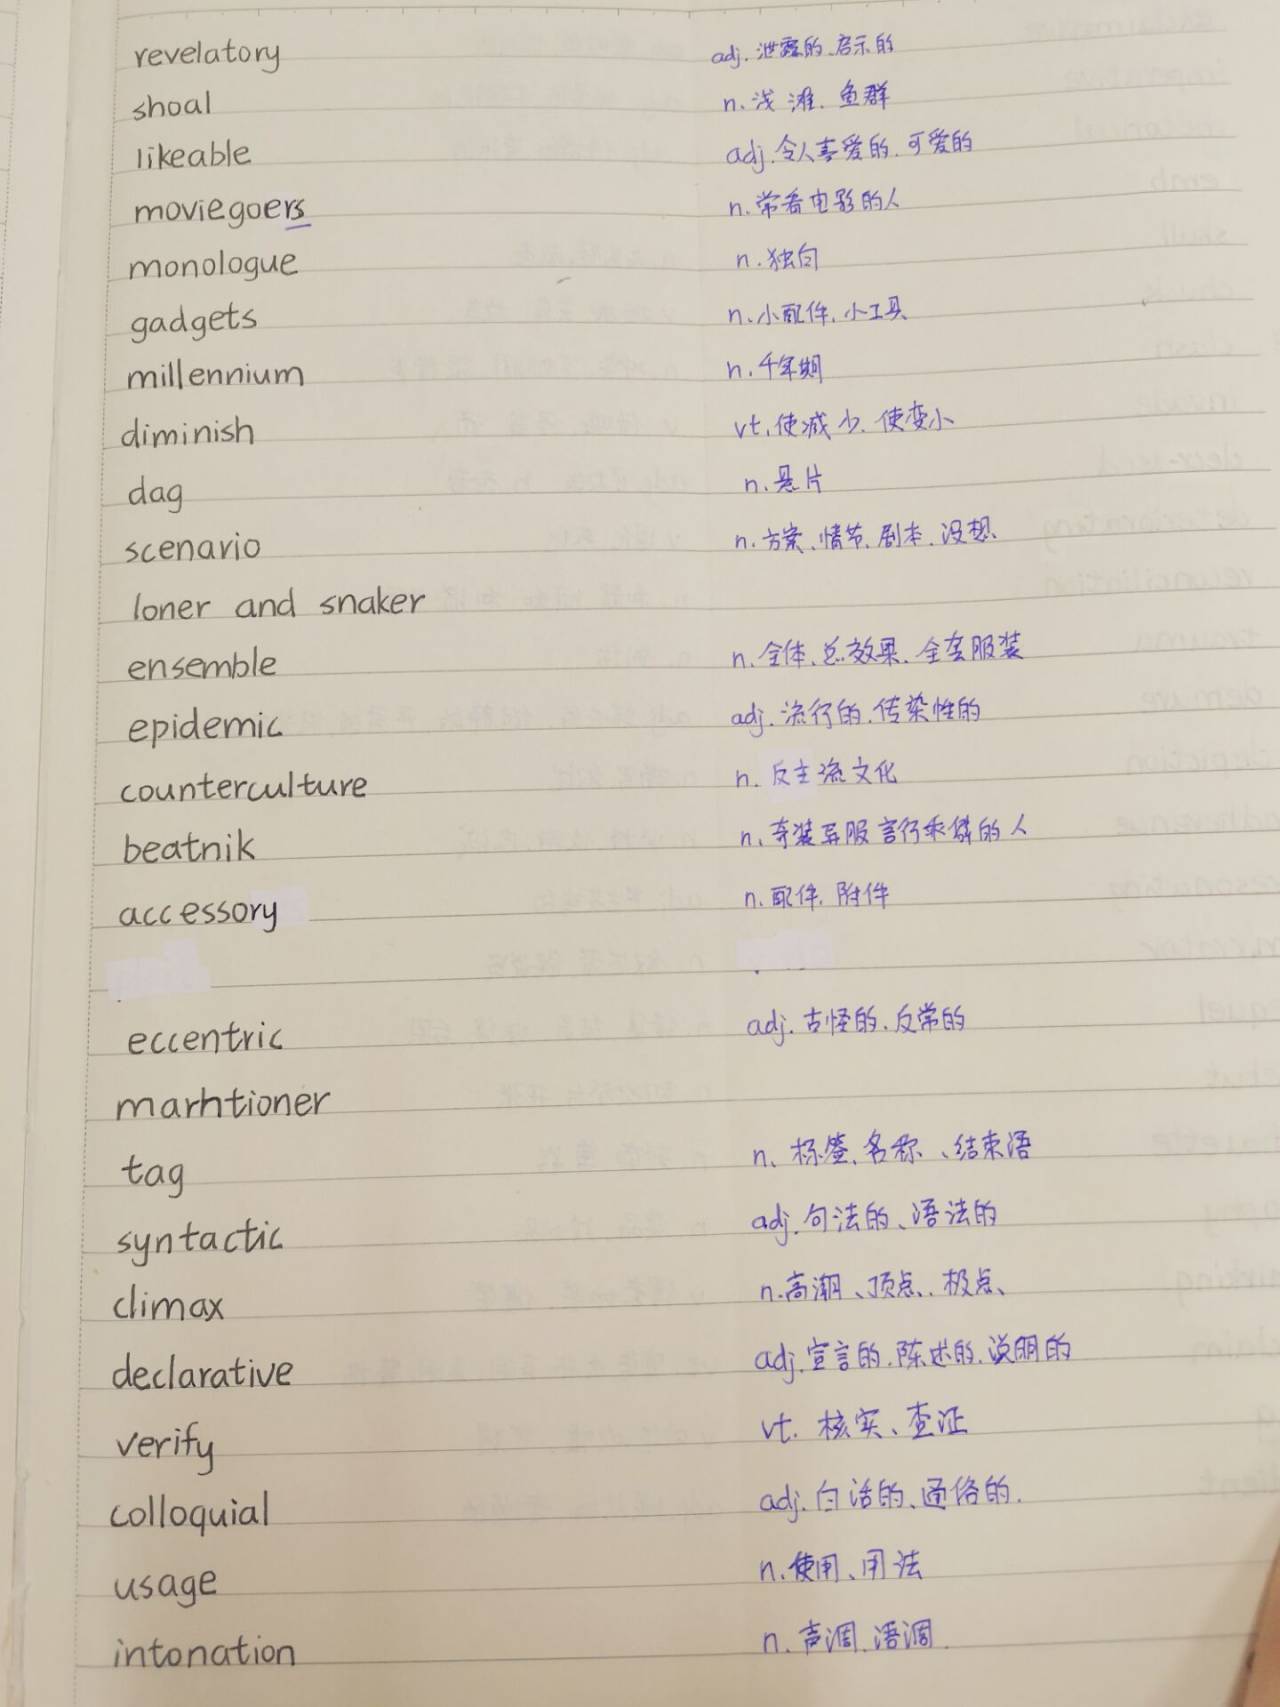 revelatory adj. 泄露的、启示的
shoal n. 浅滩、鱼群
likeable adj. 令人喜爱的、可爱的
moviegoers n. 常看电影的人
monologue n. 独白
gadgets n. 小配件、小工具
millennium n. 千年期
diminish vt. 使减少、使变小
dag n. 悬片
scenario n. 方案、情节、剧本、设想
loner and snaker
ensemble n. 全体、总效果、全套服装
epidemic adj. 流行的、传染性的
counterculture n. 反主流文化
beatnik n. 奇装异服言行乖僻的人
accessory n. 配件、附件
eccentric adj. 古怪的、反常的
marhtioner
tag n. 标签、名称、结束语
syntactic adj. 句法的、语法的
climax n. 高潮、顶点、极点、
declarative adj. 宣言的、陈述的、说明的
verify vt. 核实、查证
colloquial adj. 白话的、通俗的.
usage n. 使用、用法
intonation n. 声调、语调